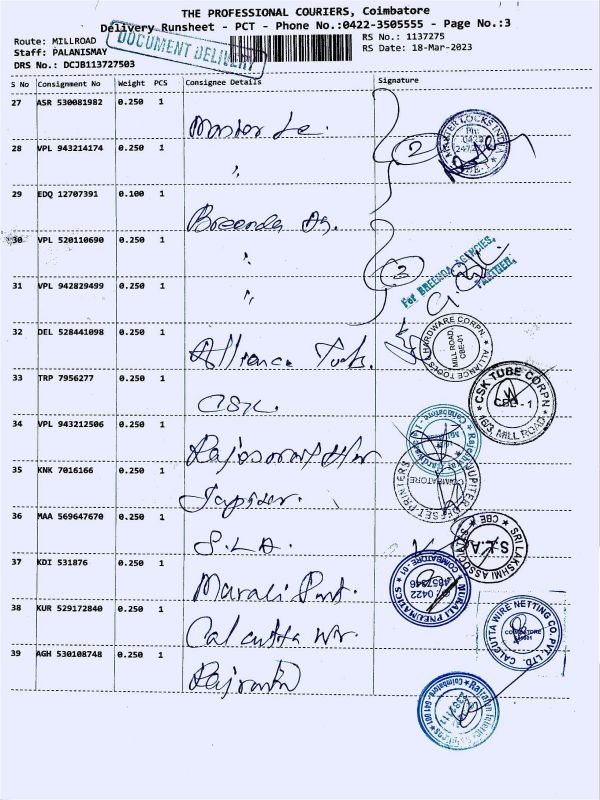 THE PROFESSIONAL COURIERS, Coimbatore
Delivery Runsheet - PCT - Phone No.:0422-3505555 - Page No.:3
Route: MILLROAD
RS No.: 1137275
Staff: PALANISMAY
RS Date: 18-Mar-2023
DRS No.: DCJB113727503
DOCUMENT DELIVERY
S No Consignment No Weight PCS Consignee Details Signature
27 ASR 530081982 0.250 1
28 VPL 943214174 0.250 1
2
29 EDQ 12707391 0.100 1
Breenda Ag.
30 VPL 520110690 0.250 1
3
For BREENDA AGENCIES,
PARTNER.
31 VPL 942829499 0.250 1
32 DEL 528441098 0.250 1
Alliance Tools.
ALLIANCE TOOLS & HARDWARE CORPN
MILL ROAD,
CBE-01
33 TRP 7956277 0.250 1
CSK
CSK TUBE CORPN
CBE - 1
16/3, MILL ROAD
34 VPL 943212506 0.250 1
35 KNK 7016166 0.250 1
Jupiter.
JUPITER OFFSET PRINTERS
COIMBATORE
36 MAA 569647670 0.250 1
S.L.A.
SRI LAKSHMI ASSOCIATES
CBE
S.L.A.
37 KDI 531876 0.250 1
Murali Pnt.
MURALI PNEUMATICS
COIMBATORE - 01
0422
4857346
38 KUR 529172840 0.250 1
Calcutta wr.
CALCUTTA WIRE NETTING CO. PVT. LTD.
COIMBATORE
39 AGH 530108748 0.250 1